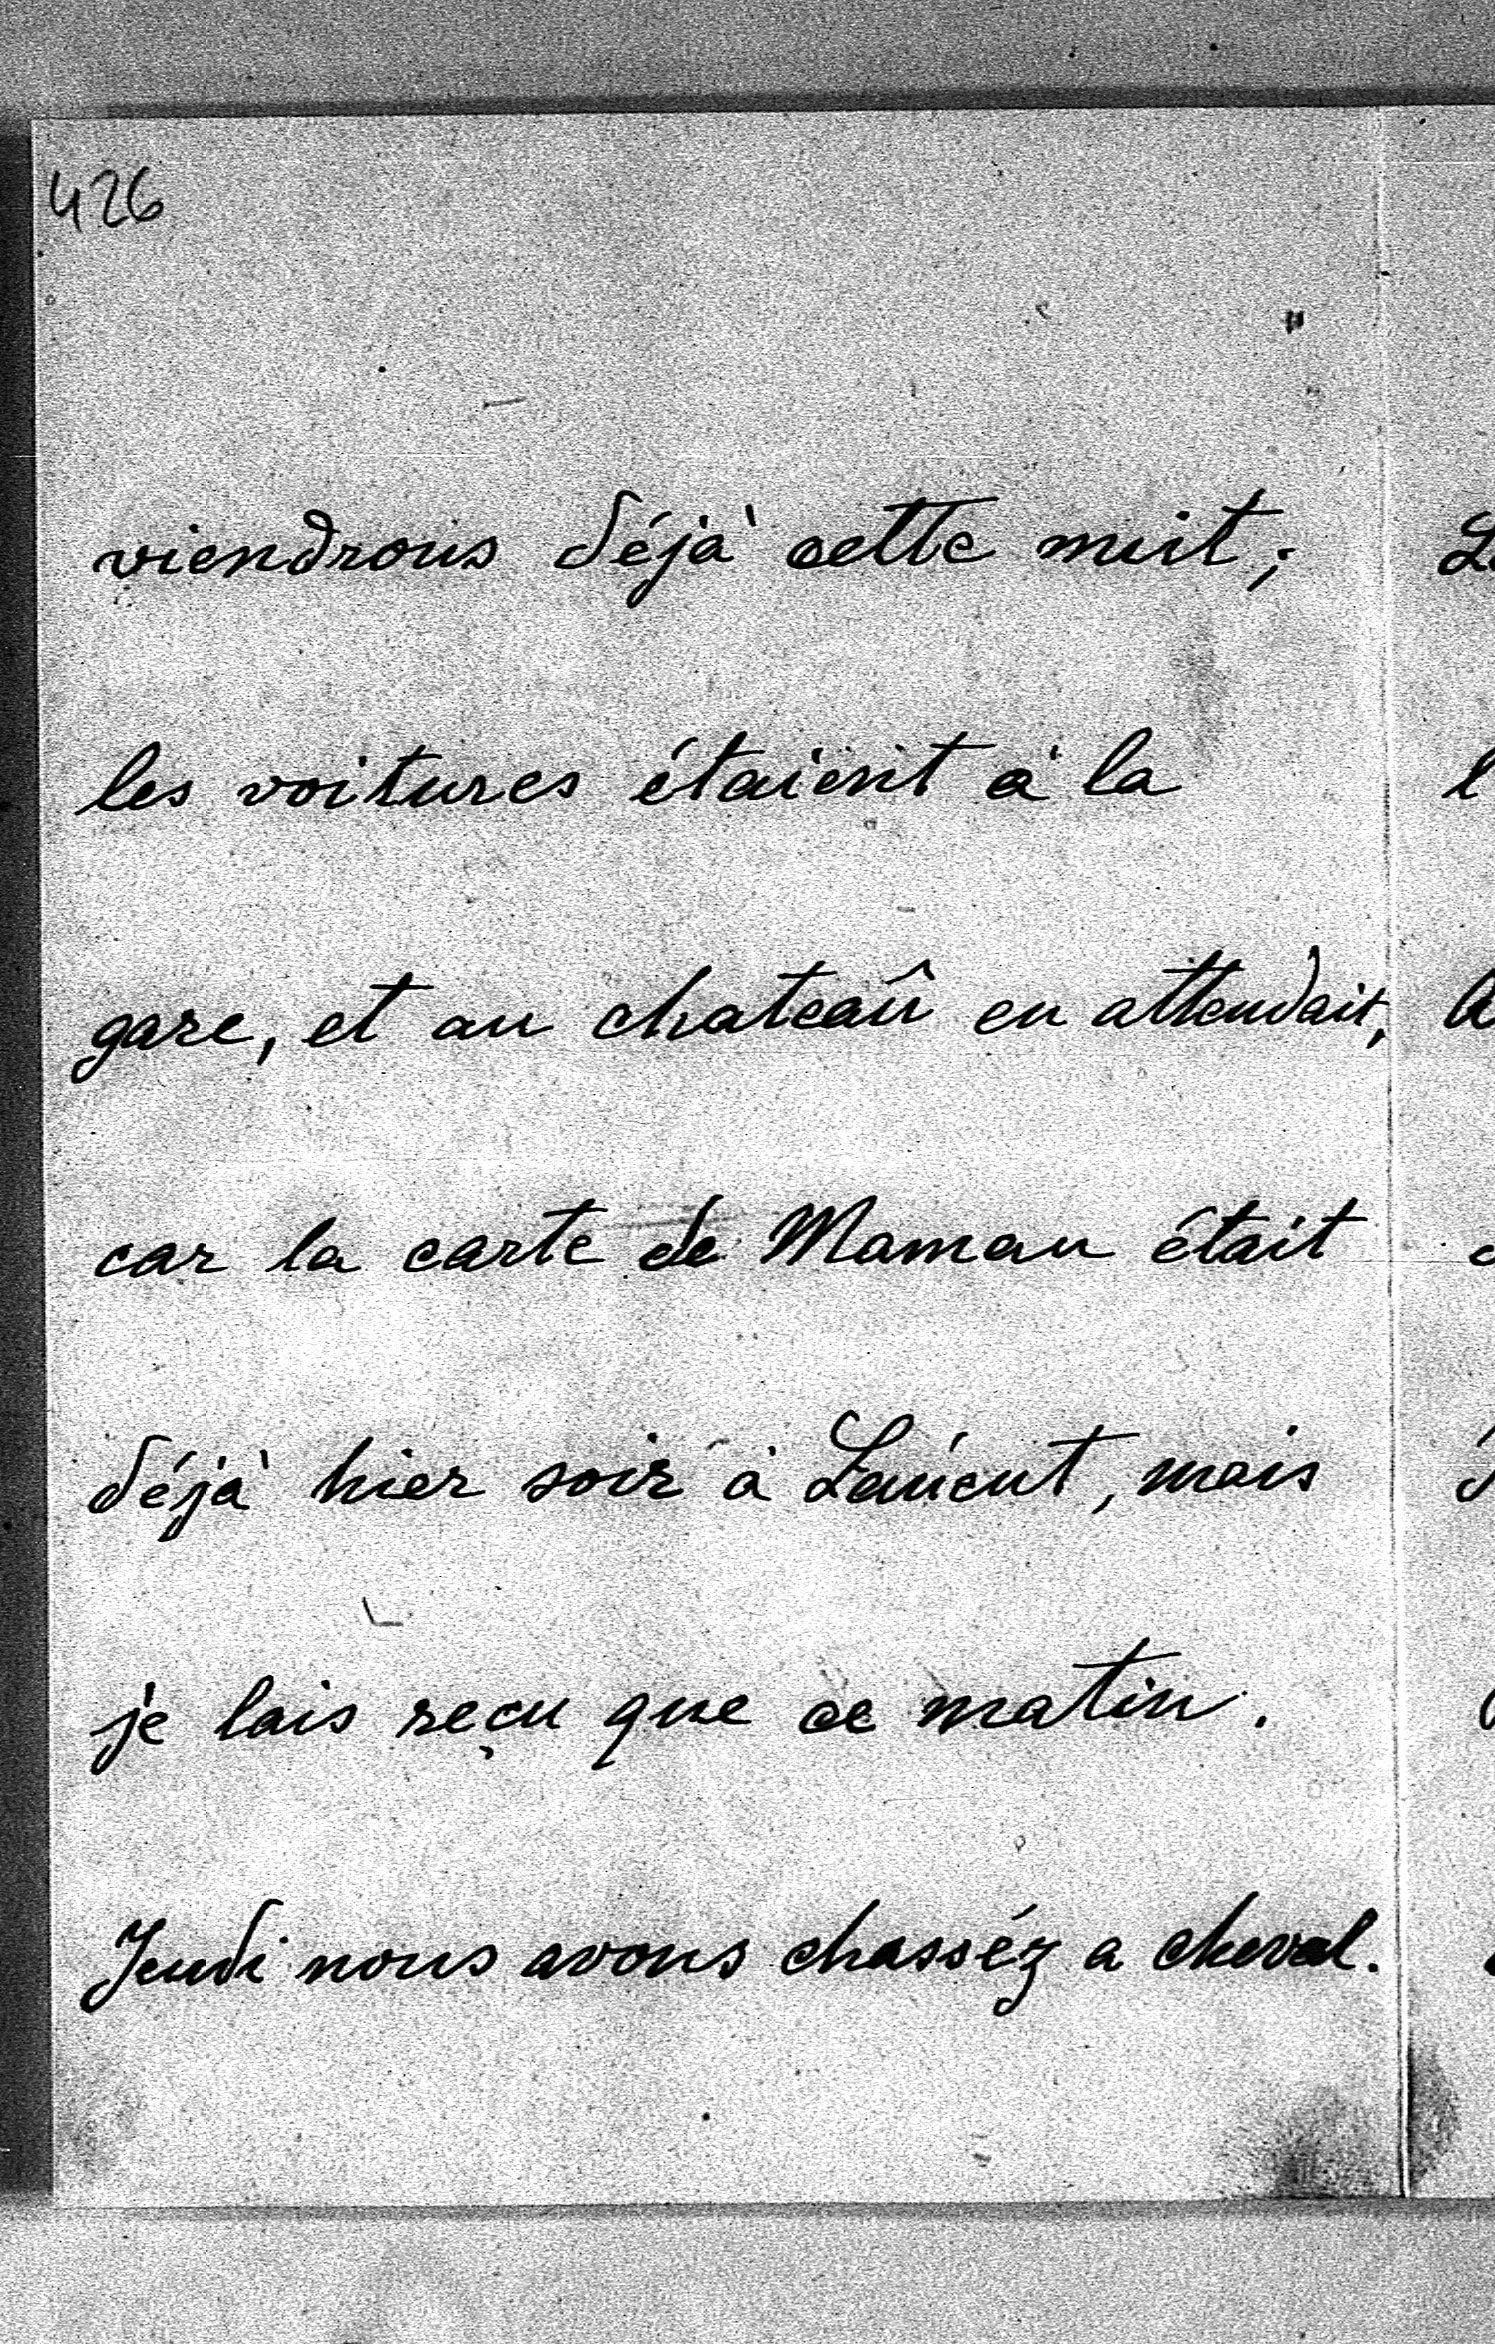 426
viendrons déjà cette nuit;
les voitures étaient à la
gare, et au chateaû en attendait,
car la carte de Maman était
déjà hier soir à Lanćut, mais
je lais reçu que ce matin.
Jeudi nous avons chasséz a cheval.